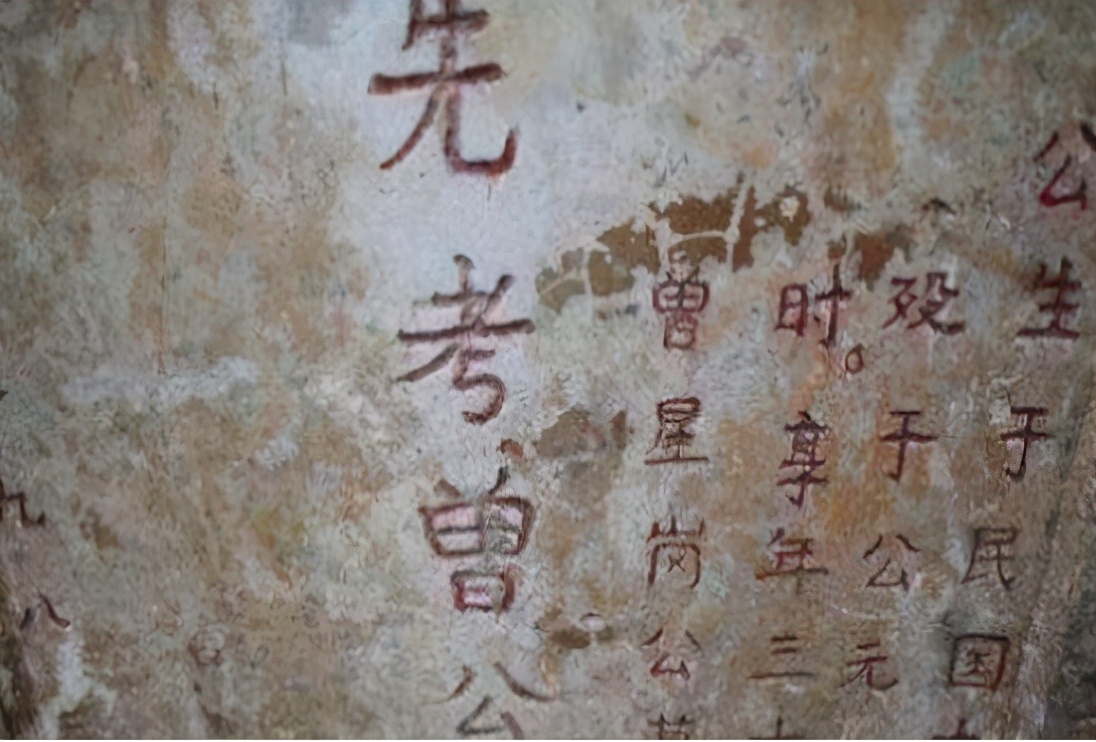 公生于民国
殁于公元
时。享年三
曾屋岗公
先考曾公
九八